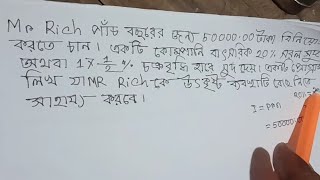 Mr Rich পাঁচ বছরের জন্য 50000.00 টাকা বিনিয়োগ
করতে চান। একটি কোম্পানি বাৎসরিক 20% সরল সুদে
অথবা 1 % চক্রবৃদ্ধি হারে সুদ দেয়। একটি
লিখ যা Mr Rich কে উৎকৃষ্ট ব্যবস্থাটি বেছে নিতে
সাহায্য করবে।
I = pnr
= 50000